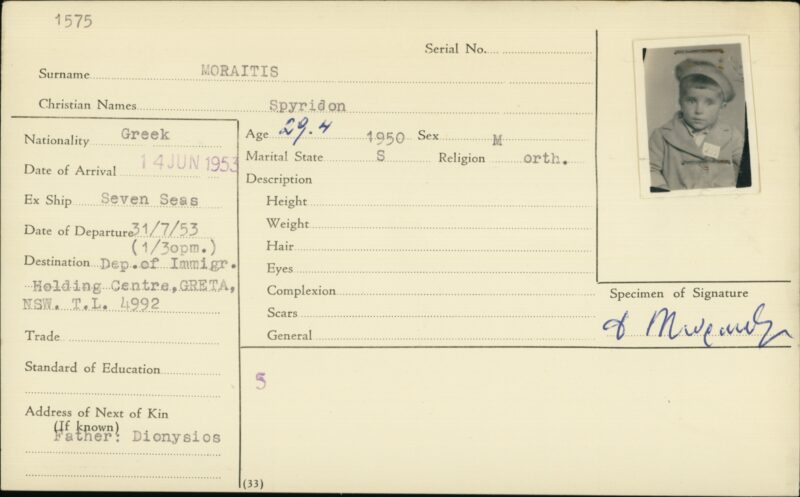 1575
Serial No.
Surname MORAITIS
Christian Names Spyridon
Nationality Greek
Date of Arrival 14 JUN 1953
Ex Ship Seven Seas
Date of Departure 31/7/53
(1/30pm.)
Destination Dep.of Immigr.
Holding Centre,GRETA,
NSW. T.L. 4992
Trade
Standard of Education
Address of Next of Kin
(If known)
Father: Dionysios
Age 29.4 1950 Sex M
Marital State S Religion orth.
Description
Height
Weight
Hair
Eyes
Complexion
Scars
General
5
(33)
Specimen of Signature